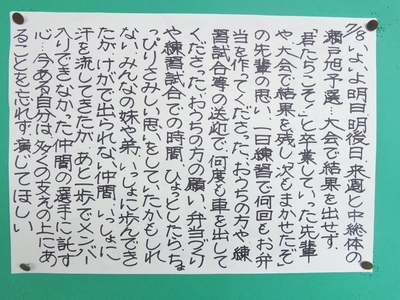 7/8 いよいよ明日、明後日、来週と中総体の
瀬戸旭予選…大会で結果を出せず、
「君たちこそ！」と卒業していった先輩
や大会で結果を残し「次もまかせたぞ」
の先輩の思い、一日練習で何回もお弁
当を作ってくださった、おうちの方や練
習試合等の送迎で何度も車を出して
くださった、おうちの方の願い、弁当づくり
や練習試合での時間、ひょっとしたら、ちょ
っぴりさみしい思いをしていたかもしれ
ない、みんなの妹や弟、いっしょに歩んでき
たが、けがで出られない仲間、いっしょに
汗を流してきたが、あと一歩でメンバー
入りできなかった仲間の選手に託す
心…今ある自分は、多くの支えの上にあ
ることを忘れず、演じてほしい